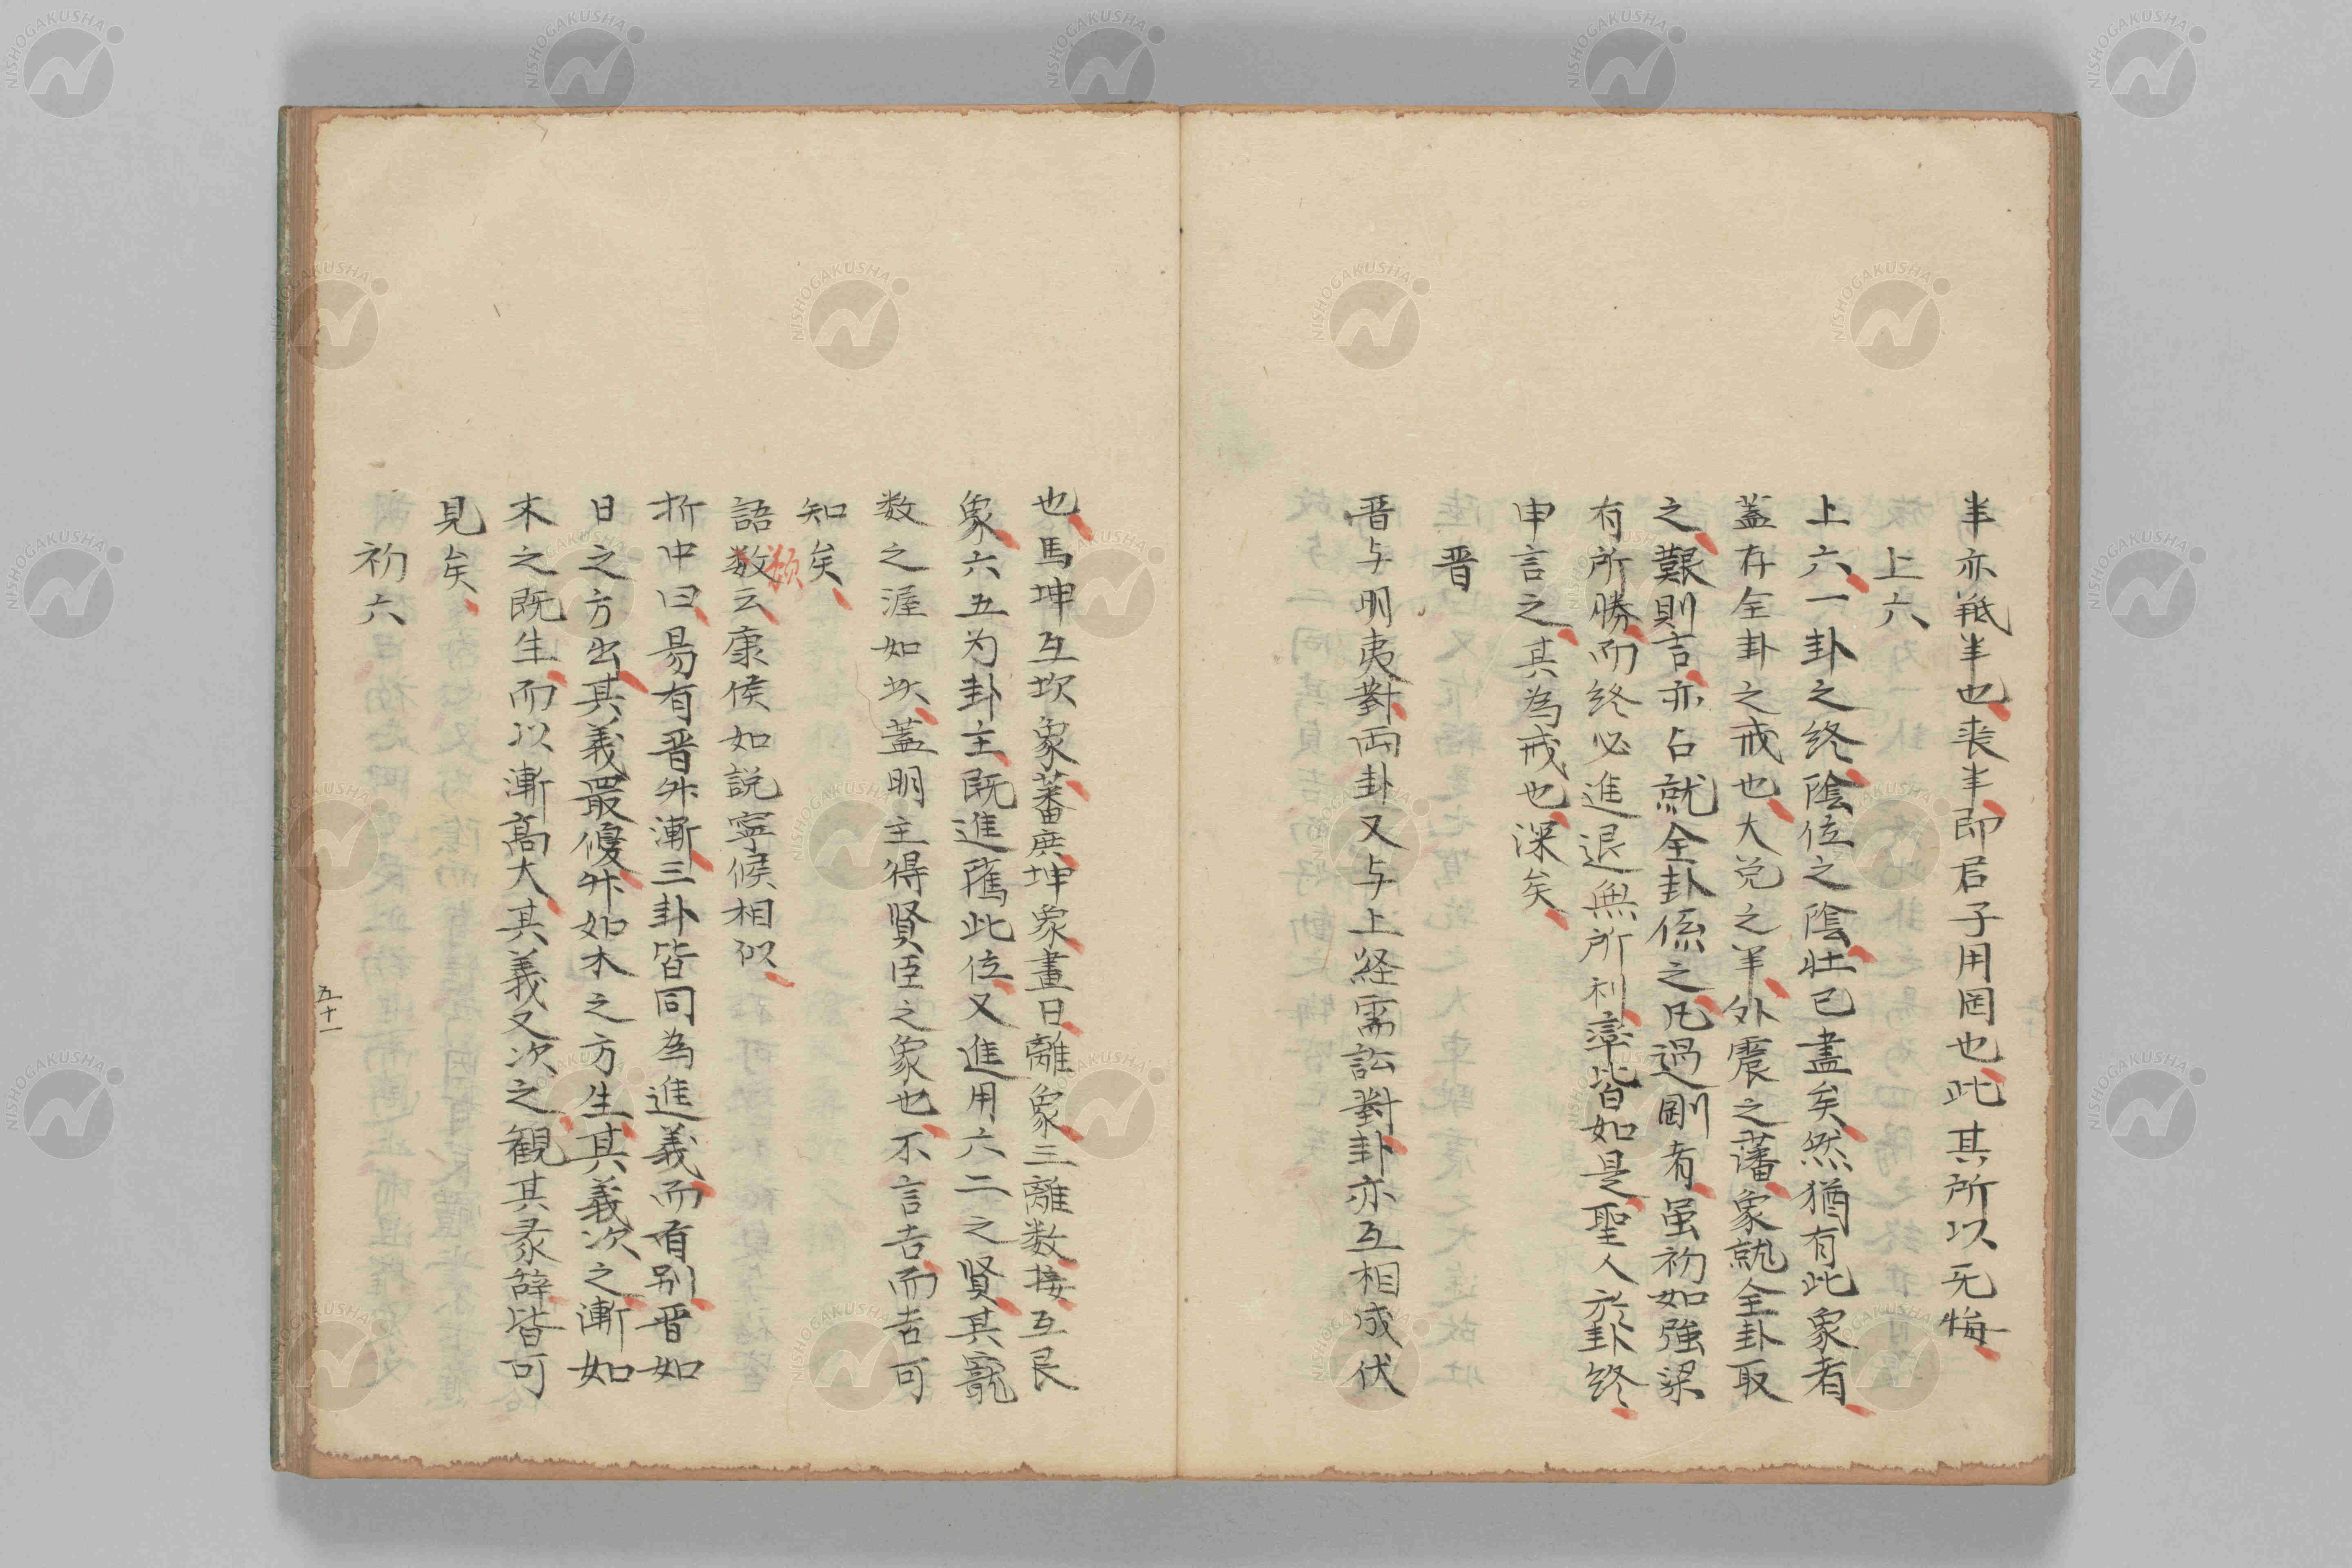 羊亦羝羊也喪羊即君子用罔也此其所以无悔
上六
上六一卦之終陰位之陰壮已盡矣然猶有此象者
蓋存全卦之戒也大兌之羊外震之藩象就全卦取
之艱則言亦占就全卦係之凡過剛者虽初如強梁
有所勝而終必進退無所利率皆如是聖人於卦終
申言之其為戒也深矣
晋
晋与明夷對両卦又与上経需訟對卦亦互相成伏
也馬坤互坎象蕃庶坤象晝日離象三離数接互艮
象六五为卦主既進陟此位又進用六二之賢其寵
数之渥如此蓋明主得賢臣之象也不言吉而吉可
知矣
語類云康侯如説寧候相似
折中曰易有晋升漸三卦皆同為進義而有别晋如
日之方出其義最優升如木之方生其義次之漸如
木之既生而以漸高大其義又次之観其彖辞皆可
見矣
初六
五十一
NISHOGAKUSHA